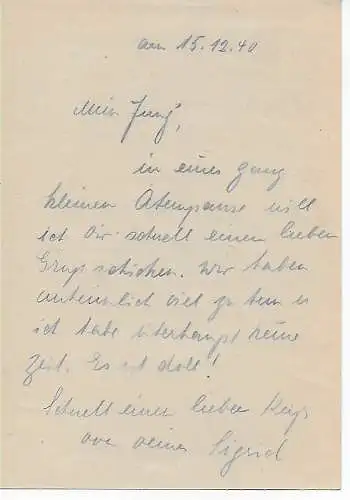 am 15.12.40
Mein Jung',
in einer ganz
kleinen Atempause will
ich Dir schnell einen lieben
Gruß schicken. Wir haben
unheimlich viel zu tun u
ich habe überhaupt keine
Zeit. Es ist doll!
Schnell einen lieben
von deiner Sigrid